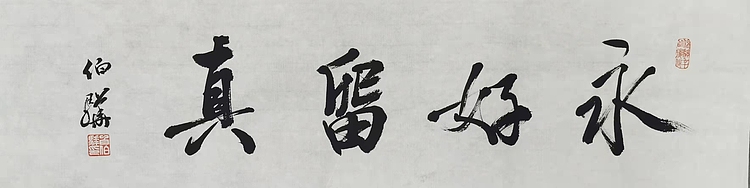 永好留真
伯